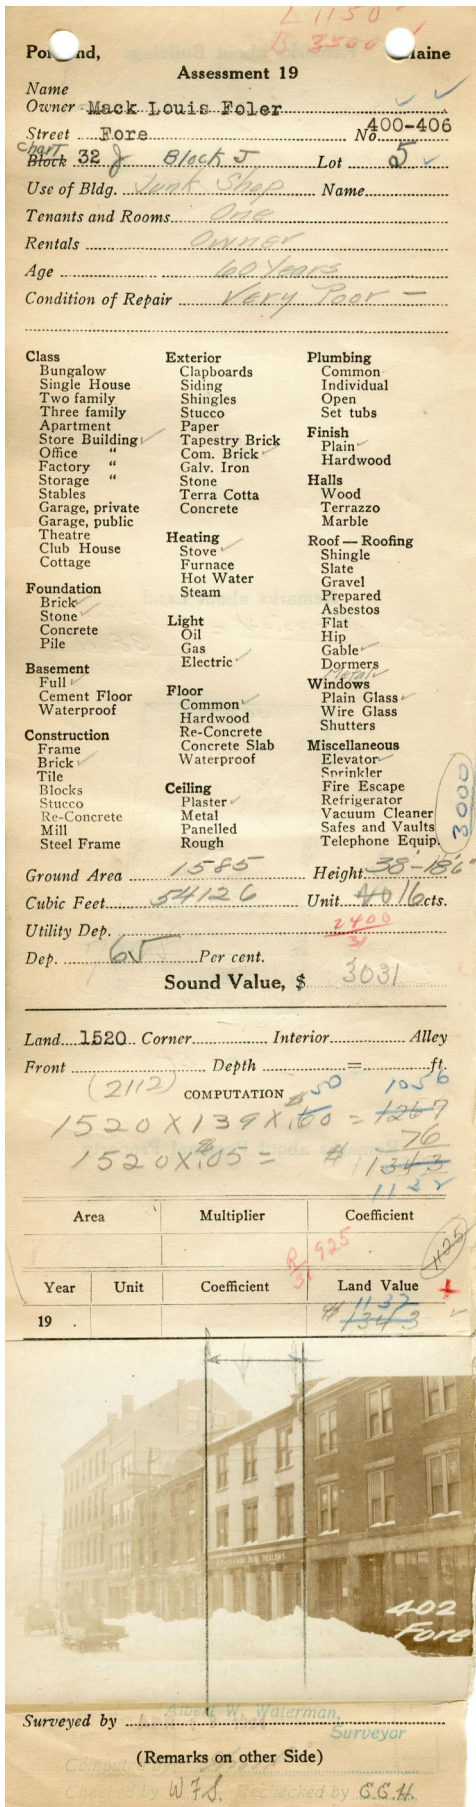 L 1150
B 3500
Portland, Maine
Assessment 19
Name
Owner Mack Louis Foler
Street Fore No 400-406
Chart
Block 32 J Block J Lot 5
Use of Bldg. Junk Shop Name
Tenants and Rooms One
Rentals Owner
Age 60 Years
Condition of Repair Very Poor —
Class
Bungalow
Single House
Two family
Three family
Apartment
Store Building ✓
Office "
Factory "
Storage "
Stables
Garage, private
Garage, public
Theatre
Club House
Cottage
Foundation
Brick ✓
Stone ✓
Concrete
Pile
Basement
Full ✓
Cement Floor
Waterproof
Construction
Frame
Brick ✓
Tile
Blocks
Stucco
Re-Concrete
Mill
Steel Frame
Exterior
Clapboards
Siding
Shingles
Stucco
Paper
Tapestry Brick
Com. Brick ✓
Galv. Iron
Stone
Terra Cotta
Concrete
Heating
Stove ✓
Furnace
Hot Water
Steam
Light
Oil
Gas
Electric ✓
Floor
Common ✓
Hardwood
Re-Concrete
Concrete Slab
Waterproof
Ceiling
Plaster ✓
Metal
Panelled
Rough
Plumbing
Common
Individual
Open
Set tubs
Finish
Plain ✓
Hardwood
Halls
Wood
Terrazzo
Marble
Roof — Roofing
Shingle
Slate
Gravel
Prepared
Asbestos
Flat
Hip
Gable ✓
Dormers
Metal ✓
Windows
Plain Glass ✓
Wire Glass
Shutters
Miscellaneous
Elevator ✓
Sprinkler
Fire Escape
Refrigerator
Vacuum Cleaner
Safes and Vaults
Telephone Equip.
3000
Ground Area 1585 Height 38'-18'6"
Cubic Feet 54126 Unit 16 cts.
Utility Dep. 2400
31
Dep. 65 Per cent.
Sound Value, $ 3031
Land 1520 Corner Interior Alley
Front Depth = ft.
(2112) COMPUTATION 50 1056
1520 X 139 X .60 = 1267
76
1520 X $.05 = $ 1343
1132
Area Multiplier Coefficient
R 925
31
1125
Year Unit Coefficient Land Value
1132
19 . $ 1343 ✓
402
Fore
Albert W. Waterman,
Surveyed by Surveyor
(Remarks on other Side)
by W.F.S. Rechecked by C.C.H.